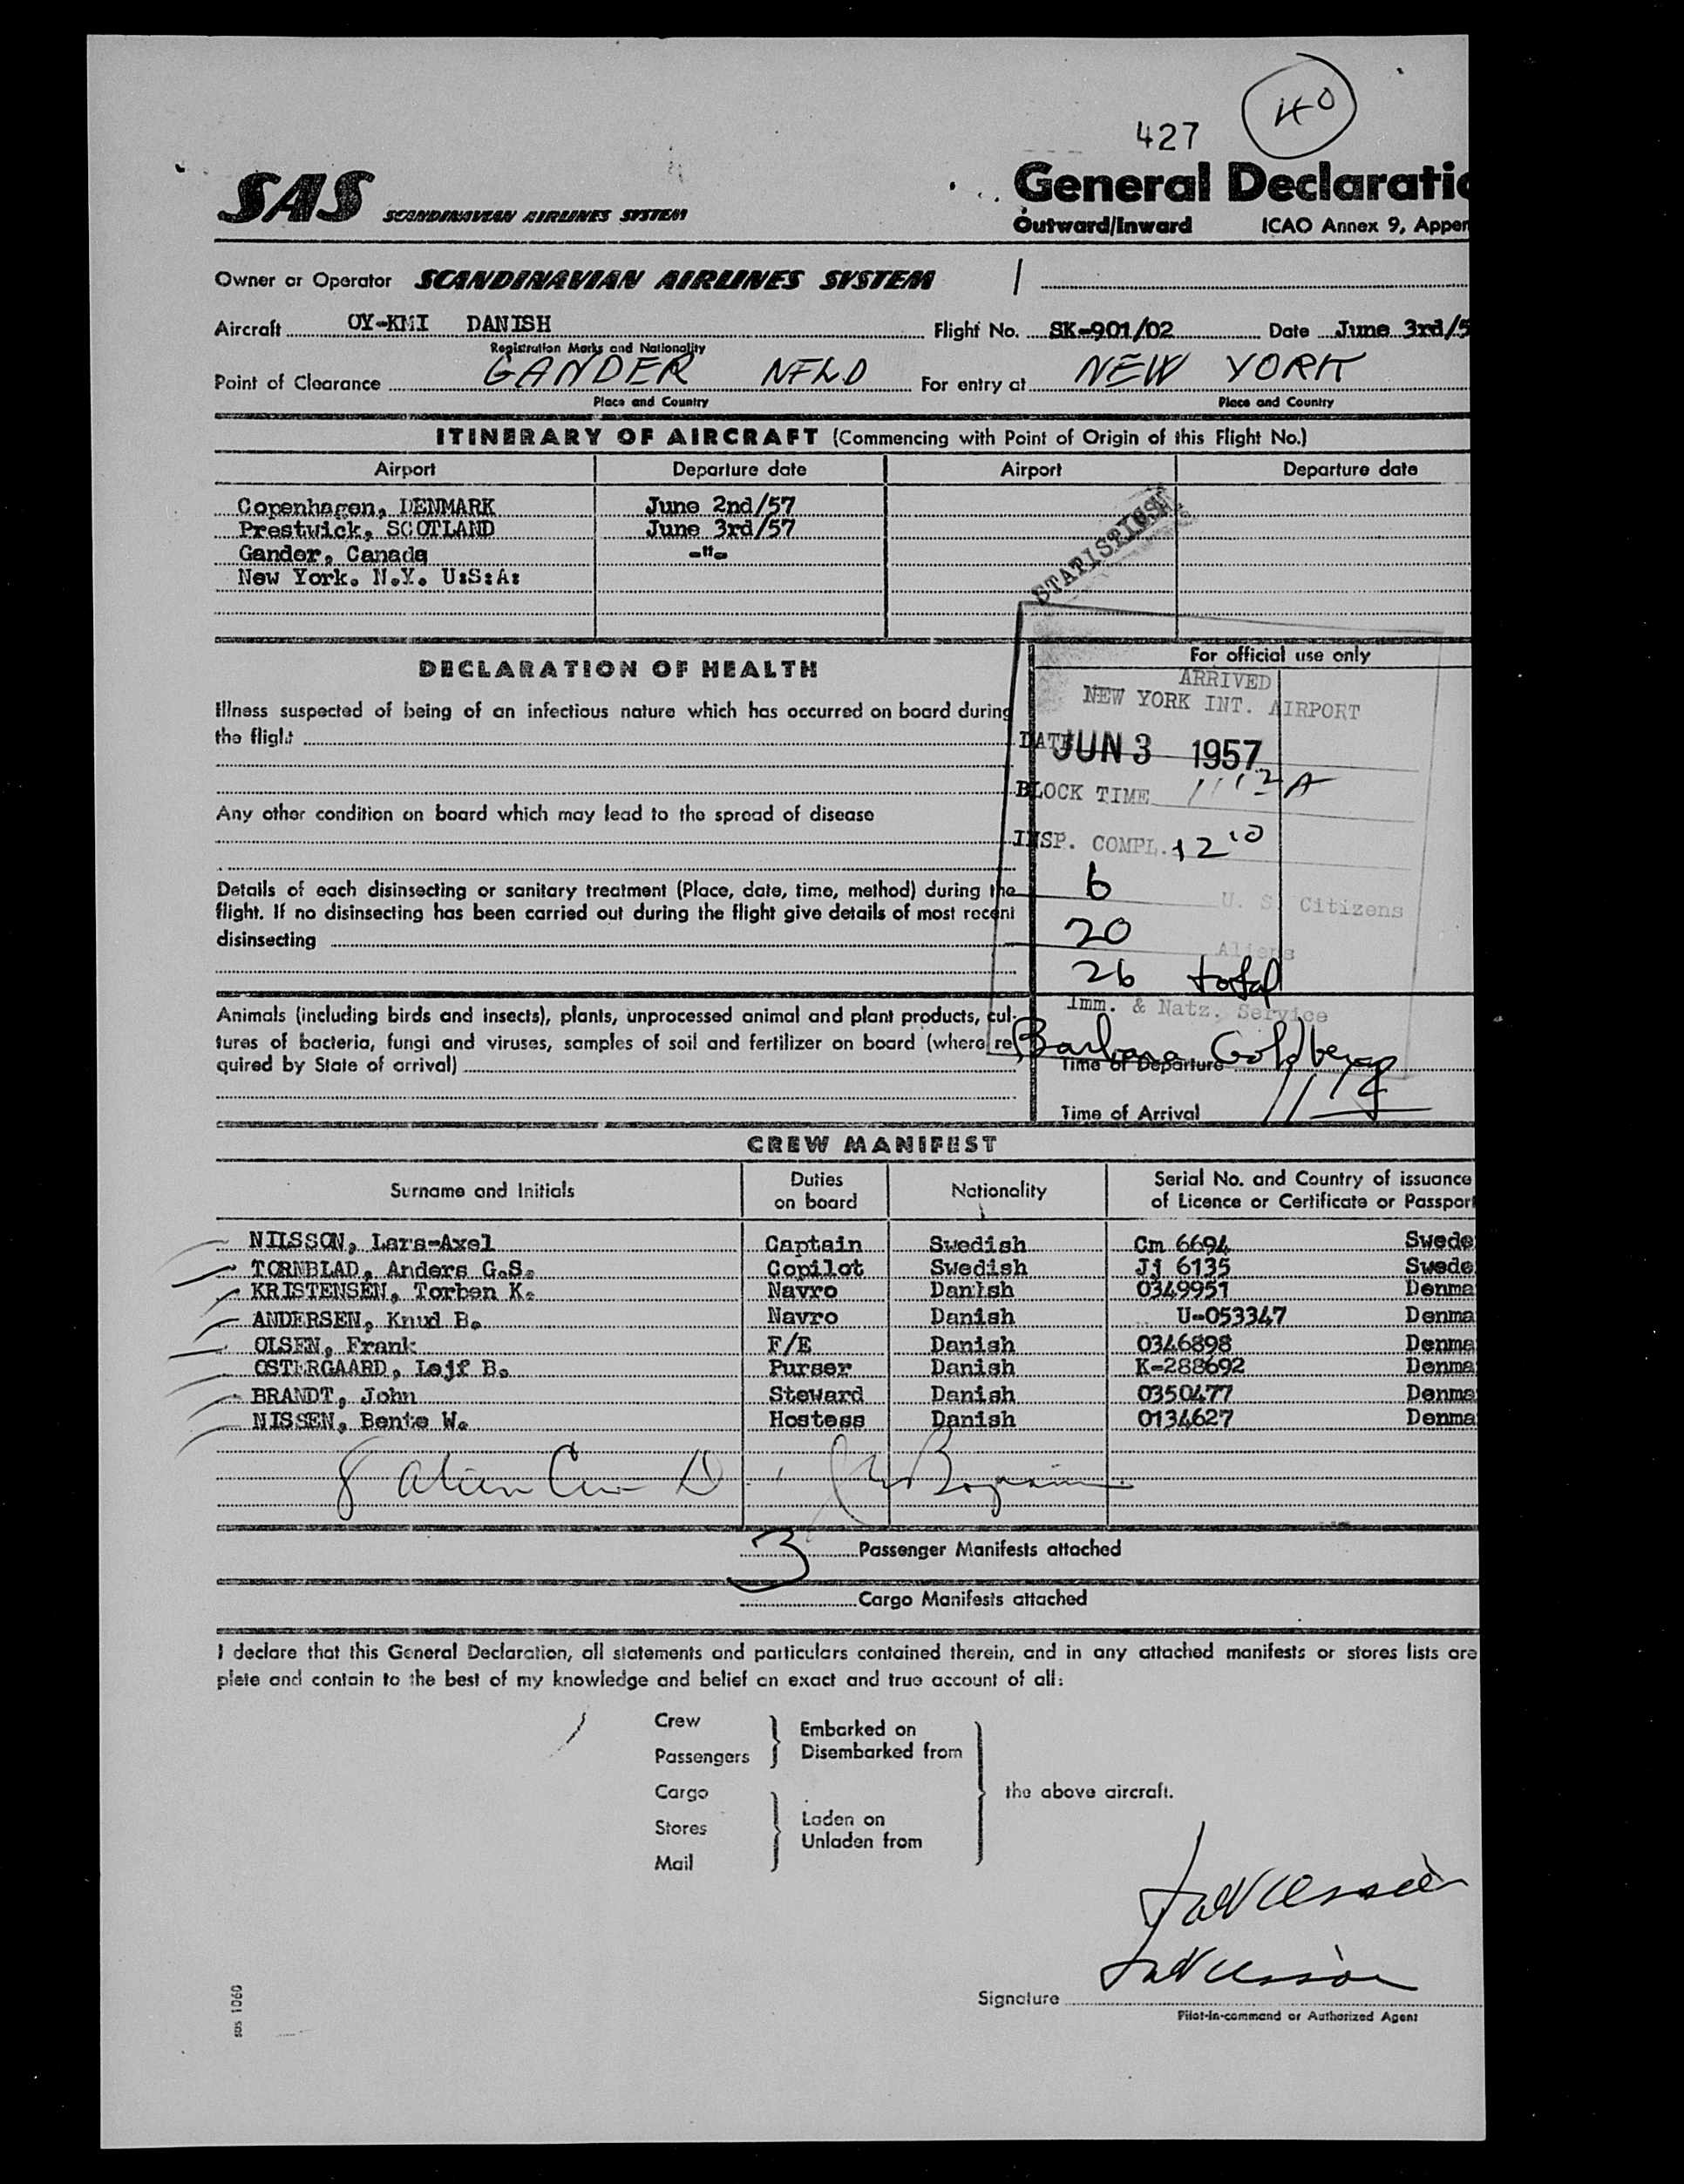 40
427
SAS SCANDINAVIAN AIRLINES SYSTEM
General Declaratio
Outward/Inward ICAO Annex 9, Appen
Owner or Operator SCANDINAVIAN AIRLINES SYSTEM
Aircraft OY-KMI DANISH Flight No. SK-901/02 Date June 3rd/5
Registration Marks and Nationality
Point of Clearance GANDER NFLD For entry at NEW YORK
Place and Country Place and Country
ITINERARY OF AIRCRAFT (Commencing with Point of Origin of this Flight No.)
Airport Departure date Airport Departure date
Copenhagen, DENMARK June 2nd/57
Prestwick, SCOTLAND June 3rd/57
Gander, Canada -"-
New York. N.Y. U:S:A:
STATISTICS
DECLARATION OF HEALTH
Illness suspected of being of an infectious nature which has occurred on board during
the flight
Any other condition on board which may lead to the spread of disease
Details of each disinsecting or sanitary treatment (Place, date, time, method) during the
flight. If no disinsecting has been carried out during the flight give details of most recent
disinsecting
Animals (including birds and insects), plants, unprocessed animal and plant products, cul-
tures of bacteria, fungi and viruses, samples of soil and fertilizer on board (where re
quired by State of arrival)
For official use only
ARRIVED
NEW YORK INT. AIRPORT
DATE JUN 3 1957
BLOCK TIME 11 12 A
INSP. COMPL. 12 10
6 U. S. Citizens
20 Aliens
26 total
Imm. & Natz. Service
Barbara Goldberg
Time of Departure
Time of Arrival
CREW MANIFEST
Surname and Initials Duties on board Nationality Serial No. and Country of issuance
of Licence or Certificate or Passport
NILSSON, Lars-Axel Captain Swedish Cm 6694 Swede
TORNBLAD, Anders G.S. Copilot Swedish Jj 6135 Swede
KRISTENSEN, Torben K. Navro Danish 0349951 Denma
ANDERSEN, Knud B. Navro Danish U-053347 Denma
OLSEN, Frank F/E Danish 0346898 Denma
OSTERGAARD, Lejf B. Purser Danish K-288692 Denma
BRANDT, John Steward Danish 0350477 Denma
NISSEN, Bente W. Hostess Danish 0134627 Denma
8 alien
3 Passenger Manifests attached
Cargo Manifests attached
I declare that this General Declaration, all statements and particulars contained therein, and in any attached manifests or stores lists are
plete and contain to the best of my knowledge and belief an exact and true account of all:
Crew
Passengers
Embarked on
Disembarked from
Cargo
Stores
Mail
Laden on
Unladen from
the above aircraft.
Signature
Pilot-in-command or Authorized Agent
SAS 1060